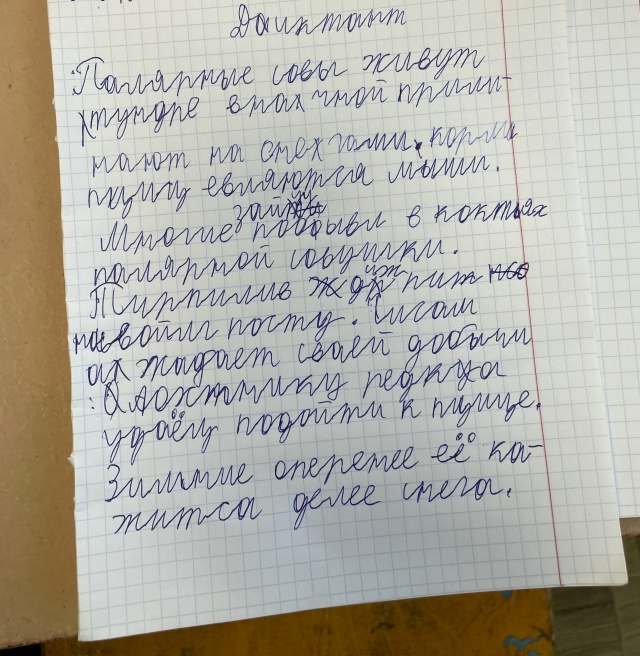 Даиктант
Палярные совы живут
тундре внах чной прили-
нают на снехгами. корма
пциц евляются мыши.
зай
Многие побывл в коктьях
палярной совушки.
Тирпилив ждй пиж
на своит посту. Чисам
ах жадает сваей добычи
Охохтнику редкуа
удаёц подойти к пцице.
Зимние оперение её ка-
житса делее снега.